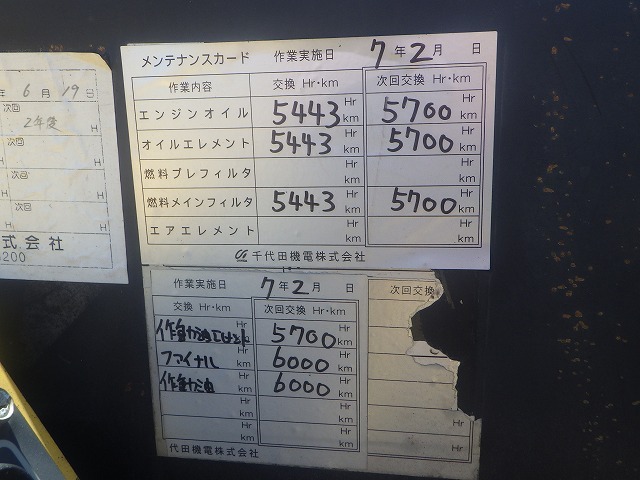 年 6 月 19 日
次回
2年後
H
次回
H
次回
H
次回
H
式会社
200
メンテナンスカード 作業実施日 7 年 2 月 日
作業内容 交換 Hr・km 次回交換 Hr・km
エンジンオイル 5443 Hr km 5700 Hr km
オイルエレメント 5443 Hr km 5700 Hr km
燃料プレフィルタ Hr km Hr km
燃料メインフィルタ 5443 Hr km 5700 Hr km
エアエレメント Hr km Hr km
千代田機電株式会社
作業実施日 7 年 2 月 日
交換 Hr・km 次回交換 Hr・km 次回交換
作動油エレメント Hr km 5700 Hr km
ファイナル Hr km 6000 Hr km
作動油 Hr km 6000 Hr km
Hr km Hr km
Hr km Hr km
代田機電株式会社